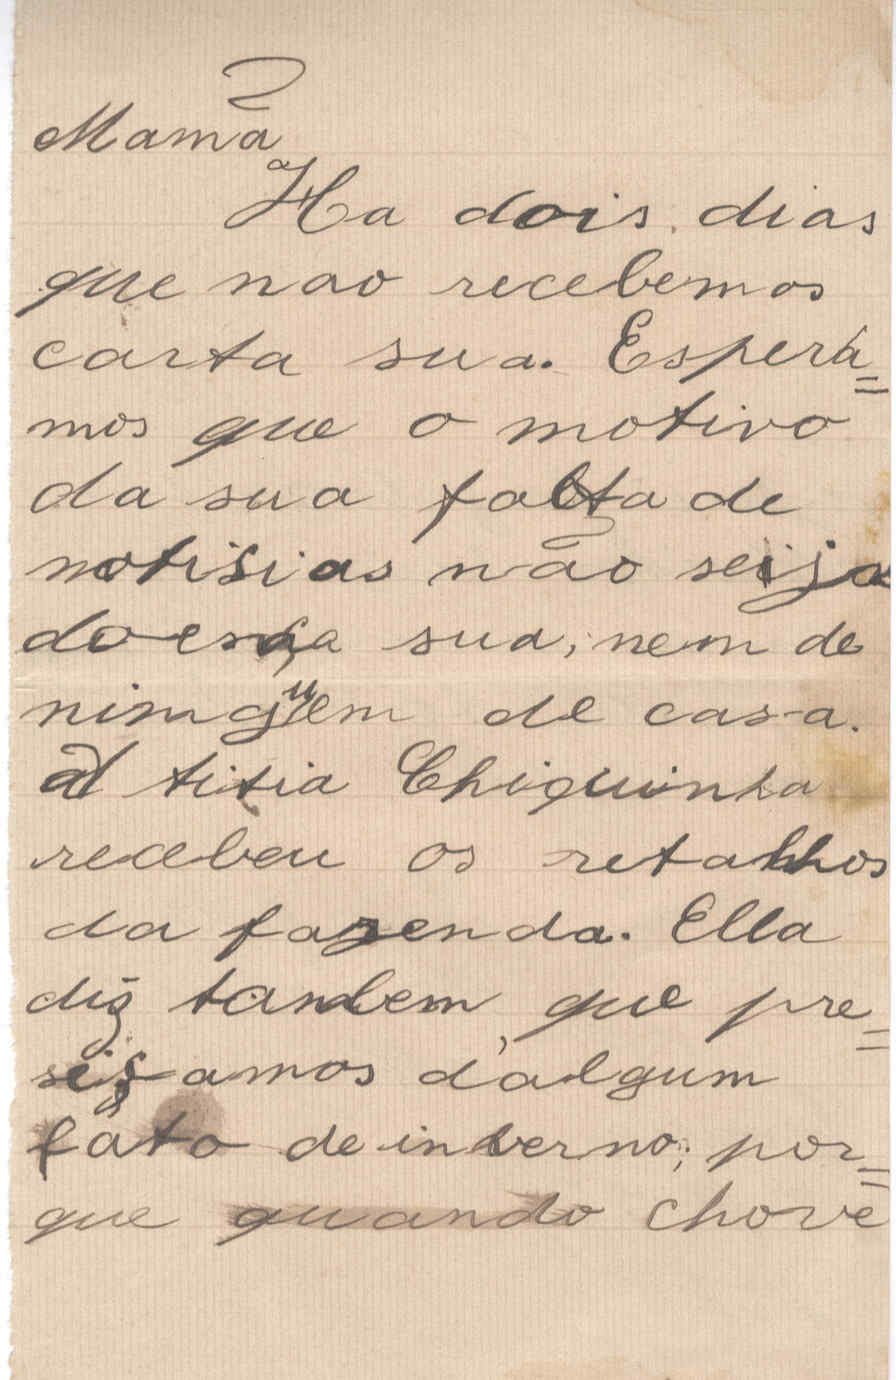 Mamã
Ha dois dias
que nao recebemos
carta sua. Espera=
mos que o motivo
da sua falta de
notisias não seija
doença sua, nem de
nimguem de casa.
A titia Chiquinha
recebeu os retalhos
da fazenda. Ella
diz tambem que pre=
seisamos d'algum
fato de inverno, por=
que quando chove